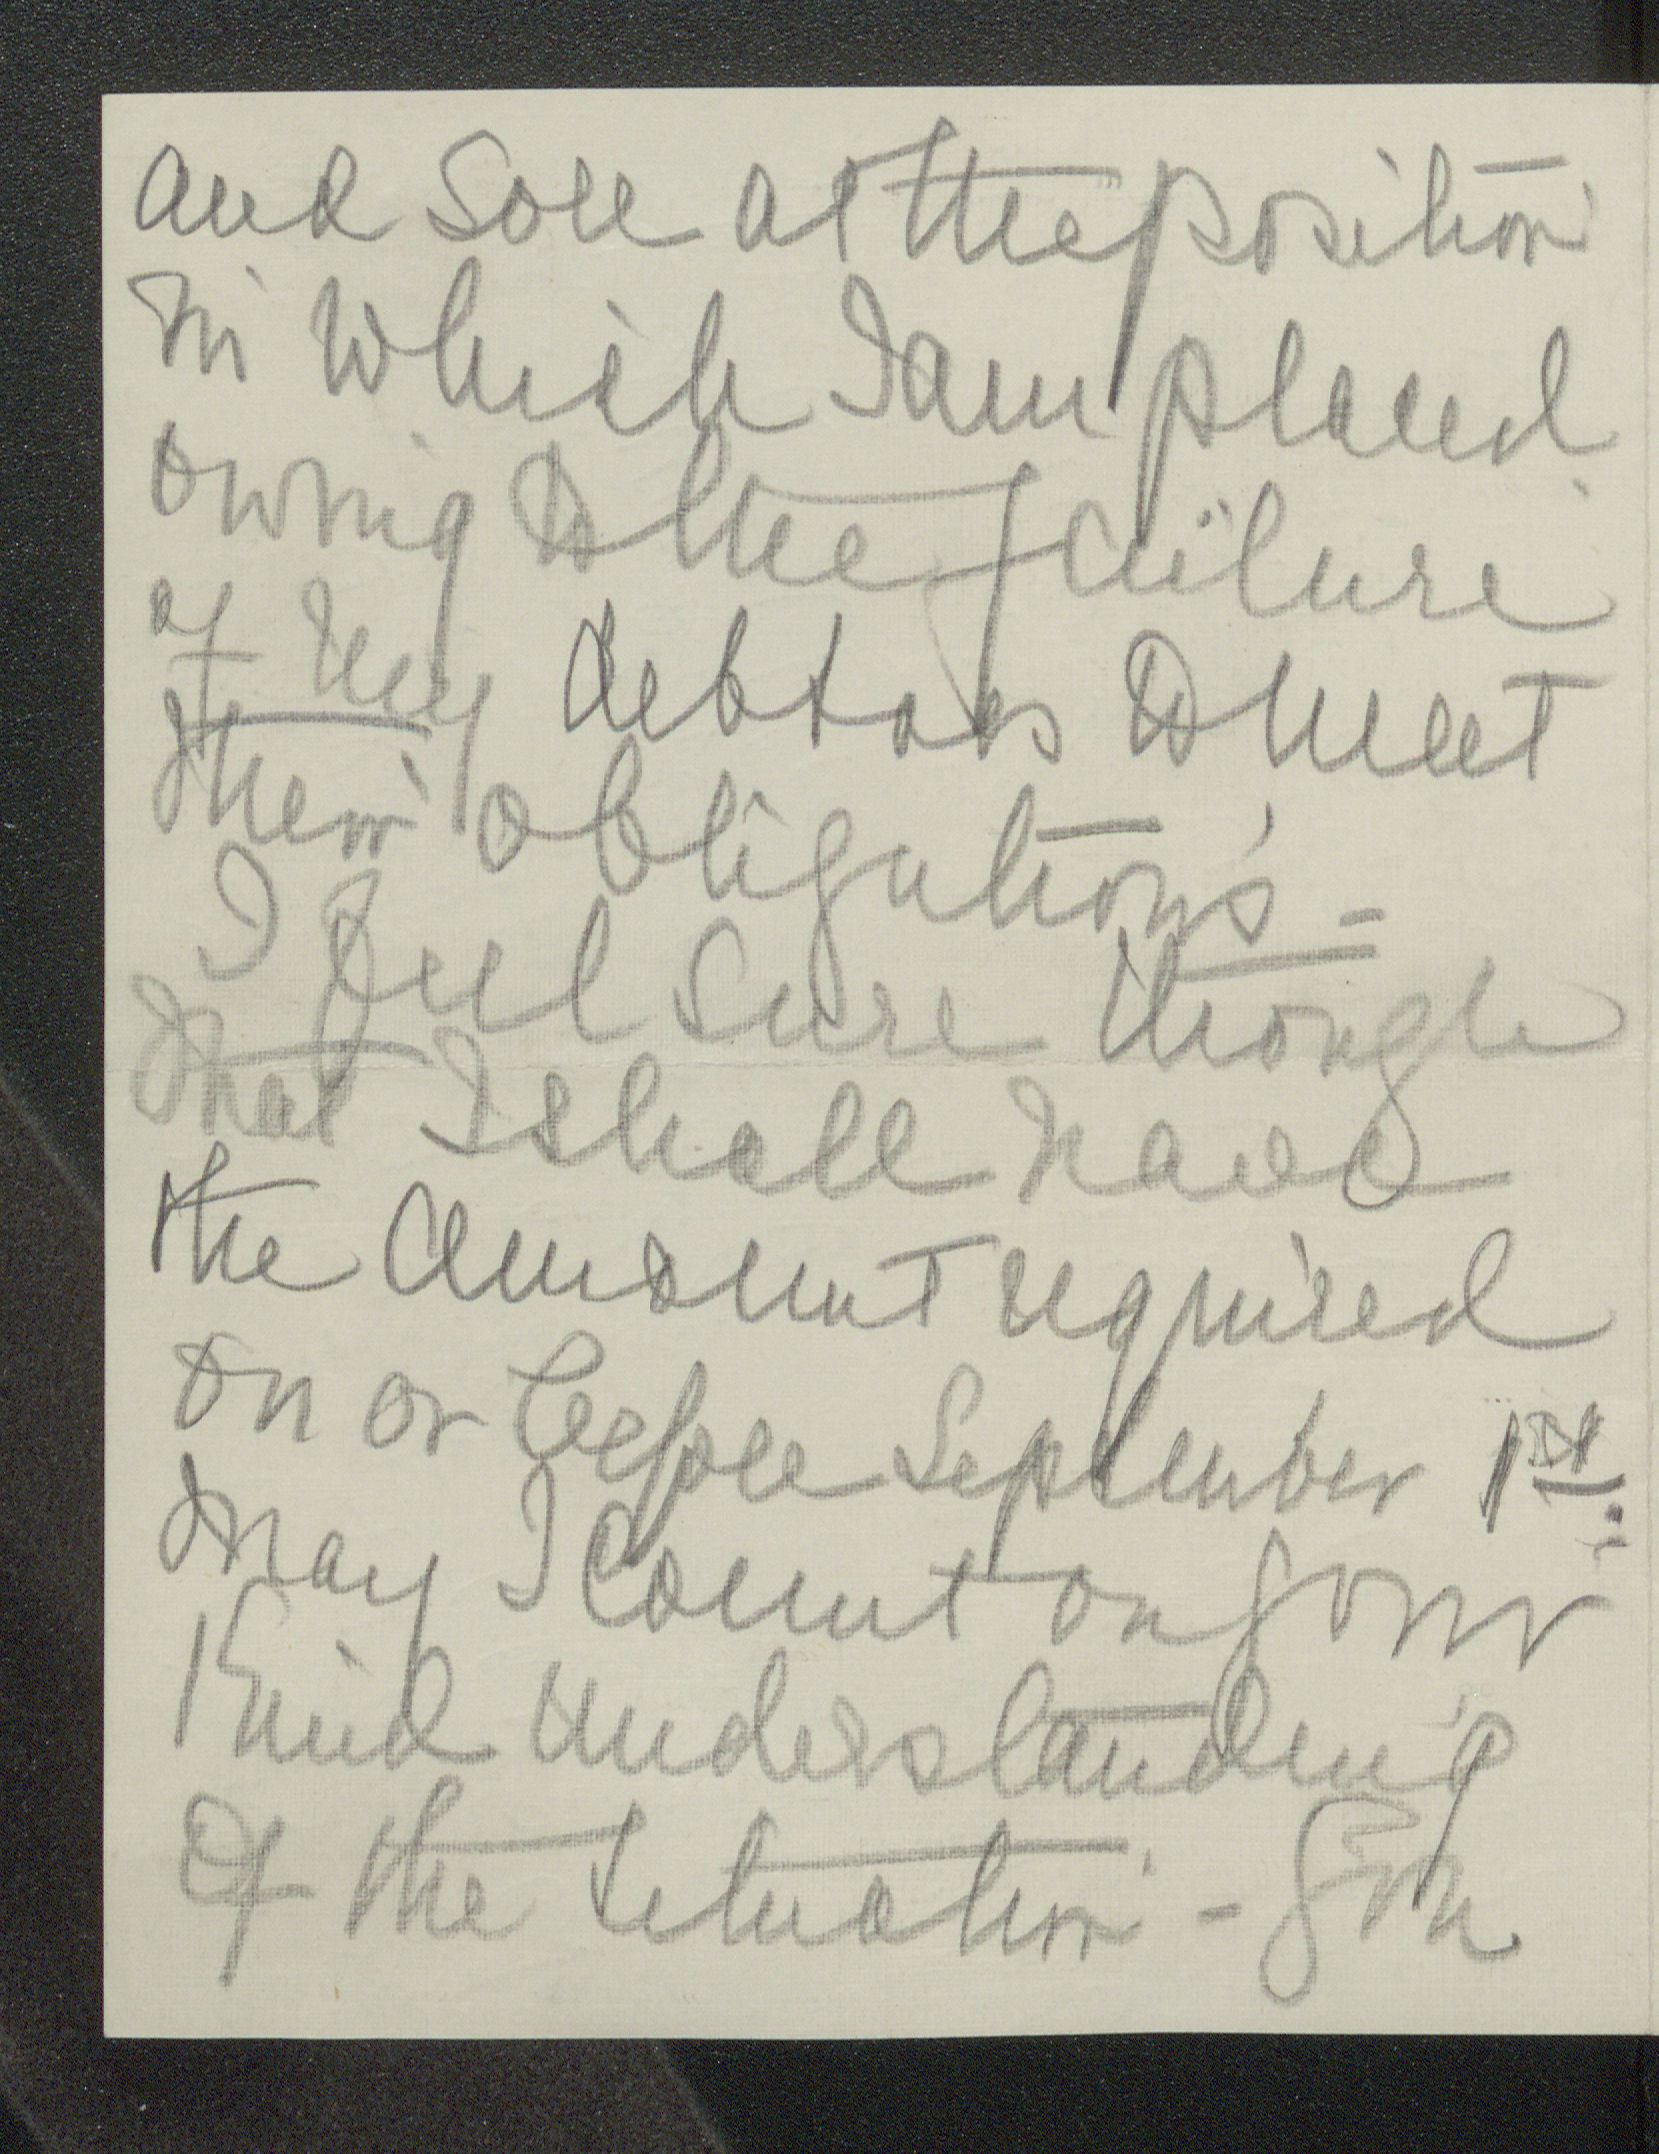 and sore at the position
in which I am placed
owing to the failure
of my debtors to meet
their obligations -
I feel sure though
that I shall have
the amount required
on or before September 1st.
May I count on your
kind understanding
of the situation - You